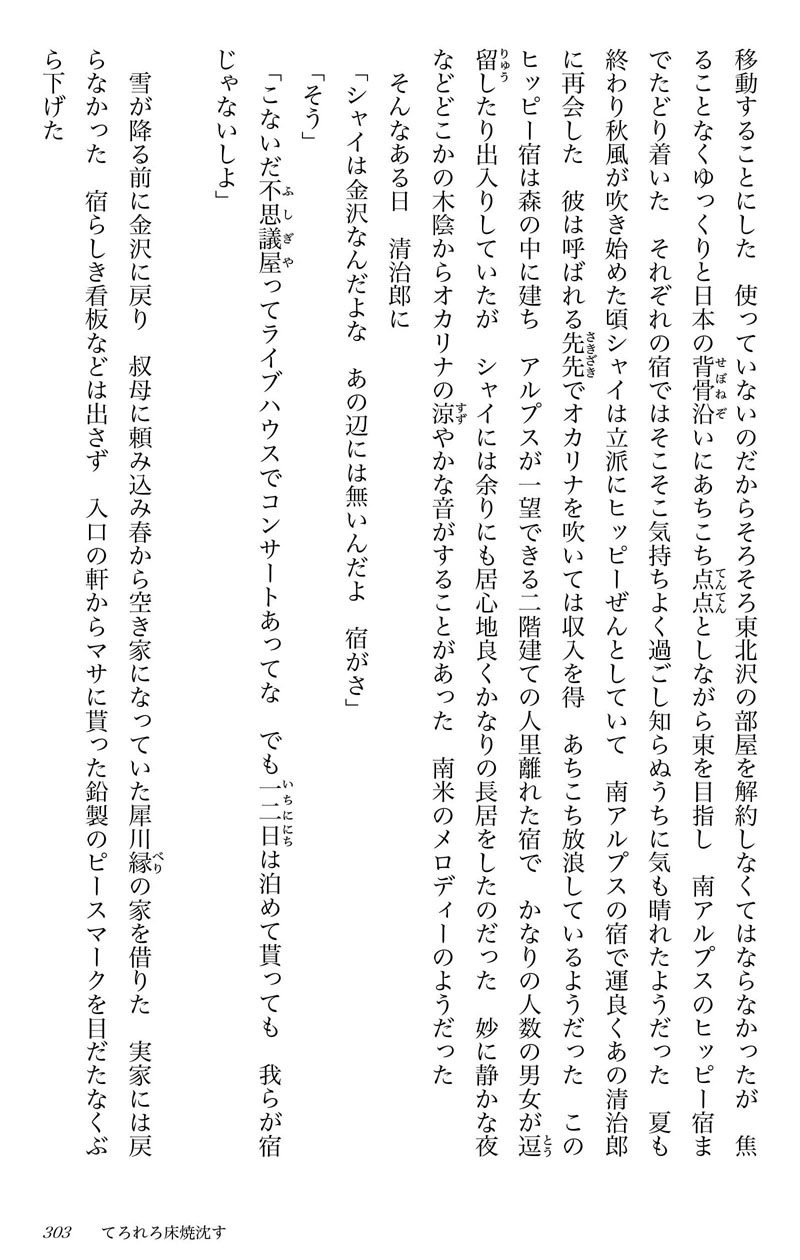 移動することにした　使っていないのだからそろそろ東北沢の部屋を解約しなくてはならなかったが　焦
ることなくゆっくりと日本の背骨沿いにあちこち点点としながら東を目指し　南アルプスのヒッピー宿ま
でたどり着いた　それぞれの宿ではそこそこ気持ちよく過ごし知らぬうちに気も晴れたようだった　夏も
終わり秋風が吹き始めた頃シャイは立派にヒッピーぜんとしていて　南アルプスの宿で運良くあの清治郎
に再会した　彼は呼ばれる先先でオカリナを吹いては収入を得　あちこち放浪しているようだった　この
ヒッピー宿は森の中に建ち　アルプスが一望できる二階建ての人里離れた宿で　かなりの人数の男女が逗
留したり出入りしていたが　シャイには余りにも居心地良くかなりの長居をしたのだった　妙に静かな夜
などどこかの木陰からオカリナの涼やかな音がすることがあった　南米のメロディーのようだった
そんなある日　清治郎に
「シャイは金沢なんだよな　あの辺には無いんだよ　宿がさ」
「そう」
「こないだ不思議屋ってライブハウスでコンサートあってな　でも一二日は泊めて貰っても　我らが宿
じゃないしよ」
雪が降る前に金沢に戻り　叔母に頼み込み春から空き家になっていた犀川縁の家を借りた　実家には戻
らなかった　宿らしき看板などは出さず　入口の軒からマサに貰った鉛製のピースマークを目だたなくぶ
ら下げた
303　てろれろ床焼沈す